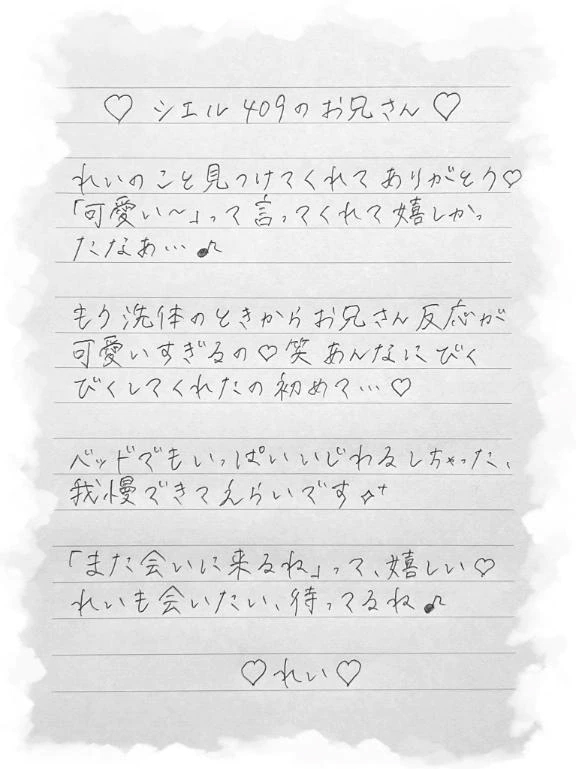 ♡ シエル 409のお兄さん ♡
れいのこと見つけてくれてありがとう♡
「可愛い〜」って言ってくれて嬉しかっ
たなあ…♪
もう洗体のときからお兄さん反応が
可愛いすぎるの♡笑 あんなにびく
びくしてくれたの初めて…♡
ベッドでもいっぱいいじわるしちゃった、
我慢できてえらいです✧⁺
「また会いに来るね」って、嬉しい♡
れいも会いたい、待ってるね♪
♡れい♡